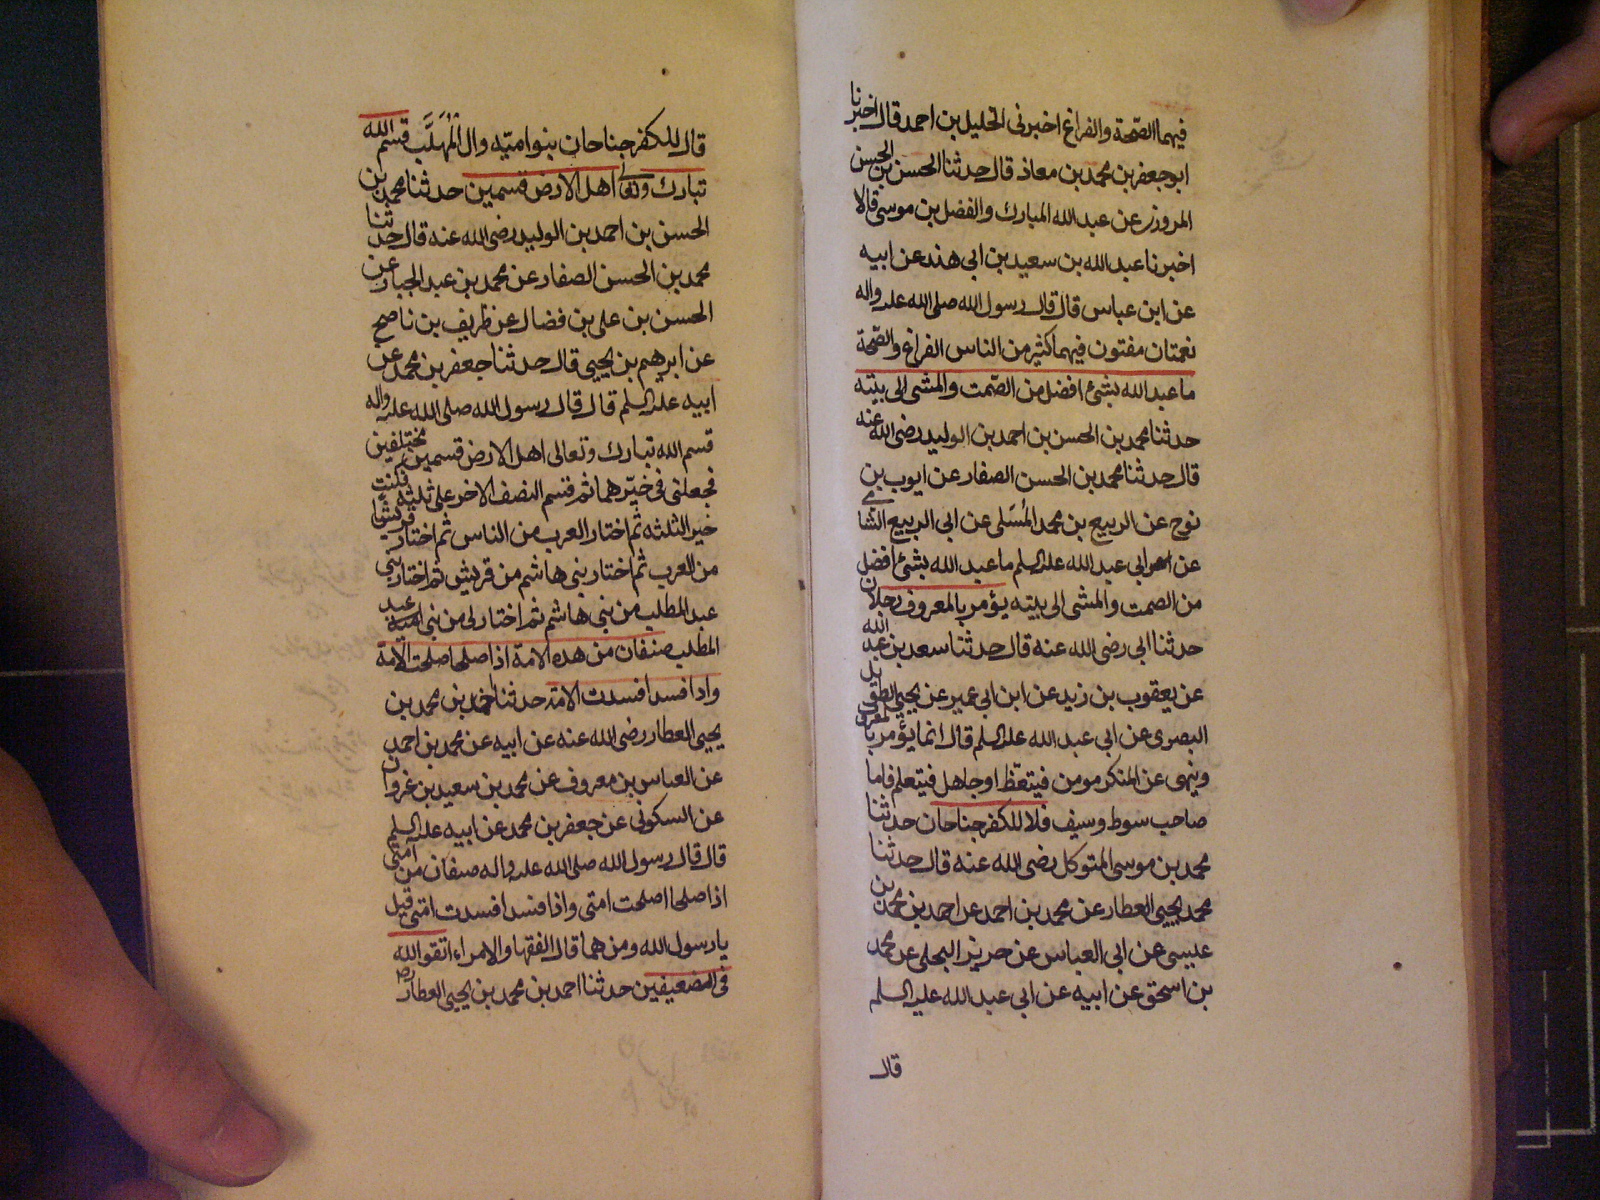 فيهما الصّحة والفراغ اخبرنى الخليل بن احمد قال اخبرنا
ابوجعفر بن محمد بن معاذ قال حدثنا الحسن بن الحسن
المروزى عن عبد الله المبارك والفضل بن موسى قالا
اخبرنا عبد الله بن سعيد بن ابى هند عن ابيه
عن ابن عباس قال قال رسول الله صلى الله عليه واله
نعمتان مفتون فيهما كثير من الناس الفراغ والصّحة
ما عبد الله بشئ افضل من الصّمت والمشى الى بيته
حدثنا محمد بن الحسن بن احمد بن الوليد رضى الله عنه
قال حدثنا محمد بن الحسن الصفار عن ايوب بن
نوح عن الربيع بن محمد المُسلى عن ابى الربيع الشامى
عن ابى عبد الله عليه السلم ما عبد الله بشئ افضل
من الصمت والمشى الى بيته يؤمر بالمعروف رجلان
حدثنا ابى رضى الله عنه قال حدثنا سعد بن عبد الله
عن يعقوب بن زيد عن ابن ابى عمير عن يحيى الطويل
البصرى عن ابى عبد الله عليه السلم قال انما يؤمر بالمعروف
وينهى عن المنكر مومن فيتعظ او جاهل فيتعلم فاما
صاحب سوط وسيف فلا للكفر جناحان حدثنا
محمد بن موسى المتوكل رضى الله عنه قال حدثنا
محمد يحيى العطار عن محمد بن احمد عن احمد بن محمد بن
عيسى عن ابى العباس عن جرير البجلى عن محمد
بن اسحق عن ابيه عن ابى عبد الله عليه السلم
قال
قال للكفر جناحان بنو اميّه وال المُهلَّب قسم الله
تبارك وتعالى اهل الارض قسمين حدثنا محمد بن
الحسن بن احمد بن الوليد رضى الله عنه قال حدثنا
محمد بن الحسن الصفار عن محمد بن عبد الجبار عن
الحسن بن على بن فضال عن ظريف بن ناصح
عن ابرهيم بن يحيى قال حدثنا جعفر بن محمد عن
ابيه عليه السلم قال قال رسول الله صلى الله عليه واله
قسم الله تبارك وتعالى اهل الارض قسمين مختلفين
فجعلنى فى خيرهما ثم قسم النصف الاخر على ثلثه فكنت
خير الثلثه ثم اختار العرب من الناس ثم اختار قريشًا
من العرب ثم اختار بنى هاشم من قريش ثم اختار بنى
عبد المطلب من بنى هاشم ثم اختارلى من بنى عبد
المطلب صنفان من هذه الامة اذا صلحا صلحت الامة
واذا فسدا فسدت الامة حدثنا احمد بن محمد بن
يحيى العطار رضى الله عنه عن ابيه عن محمد بن احمد
عن العباس بن معروف عن محمد بن سعيد بن غزوان
عن السكونى عن جعفر بن محمد عن ابيه عليه السلم
قال قال رسول الله صلى الله عليه واله صنفان من امتى
اذا صلحا صلحت امتى واذا فسدا فسدت امتى قيل
يا رسول الله ومن هما قال الفقها والامراء اتقوا الله
فى الضعيفين حدثنا احمد بن محمد بن يحيى العطار